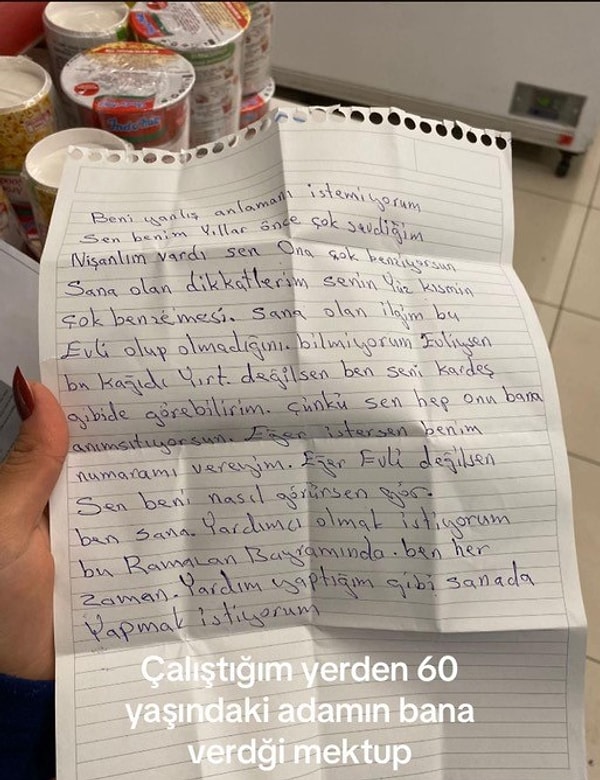 Indomie
Beni yanlış anlamanı istemiyorum
Sen benim Yıllar önce çok sevdiğim
Nişanlım vardı sen Ona çok benziyorsun
Sana olan dikkatlerim senin Yüz kısmın
çok benzemesi. Sana olan ilgim bu
Evli olup olmadığını. bilmiyorum Evliysen
bu kağıdı Yırt. değilsen ben seni kardeş
gibide görebilirim. çünkü sen hep onu bana
anımsıtıyorsun. Eğer istersen benim
numaramı vereyim. Eğer Evli değilsen
Sen beni nasıl görürsen gör.
ben sana. Yardımcı olmak istiyorum
bu Ramazan Bayramında. ben her
zaman. Yardım yaptığım gibi sanada
Yapmak istiyorum
Çalıştığım yerden 60
yaşındaki adamın bana
verdği mektup